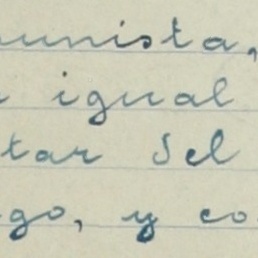 unista,
igual
tar del
go, y co